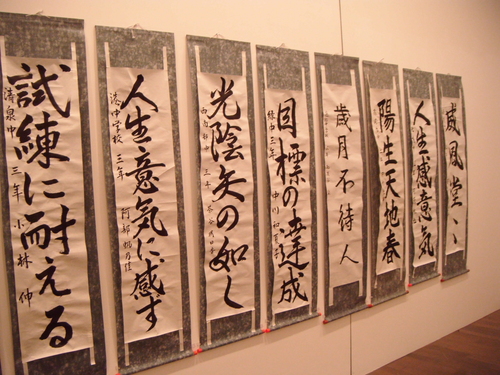 試練に耐える
清泉中 三年 小林 伸
人生意気に感ず
港中学校 三年 阿部
光陰矢の如し
目標の達成
緑市三年 中川
歳月不待人
陽生天地春
人生感意気
威風堂〻